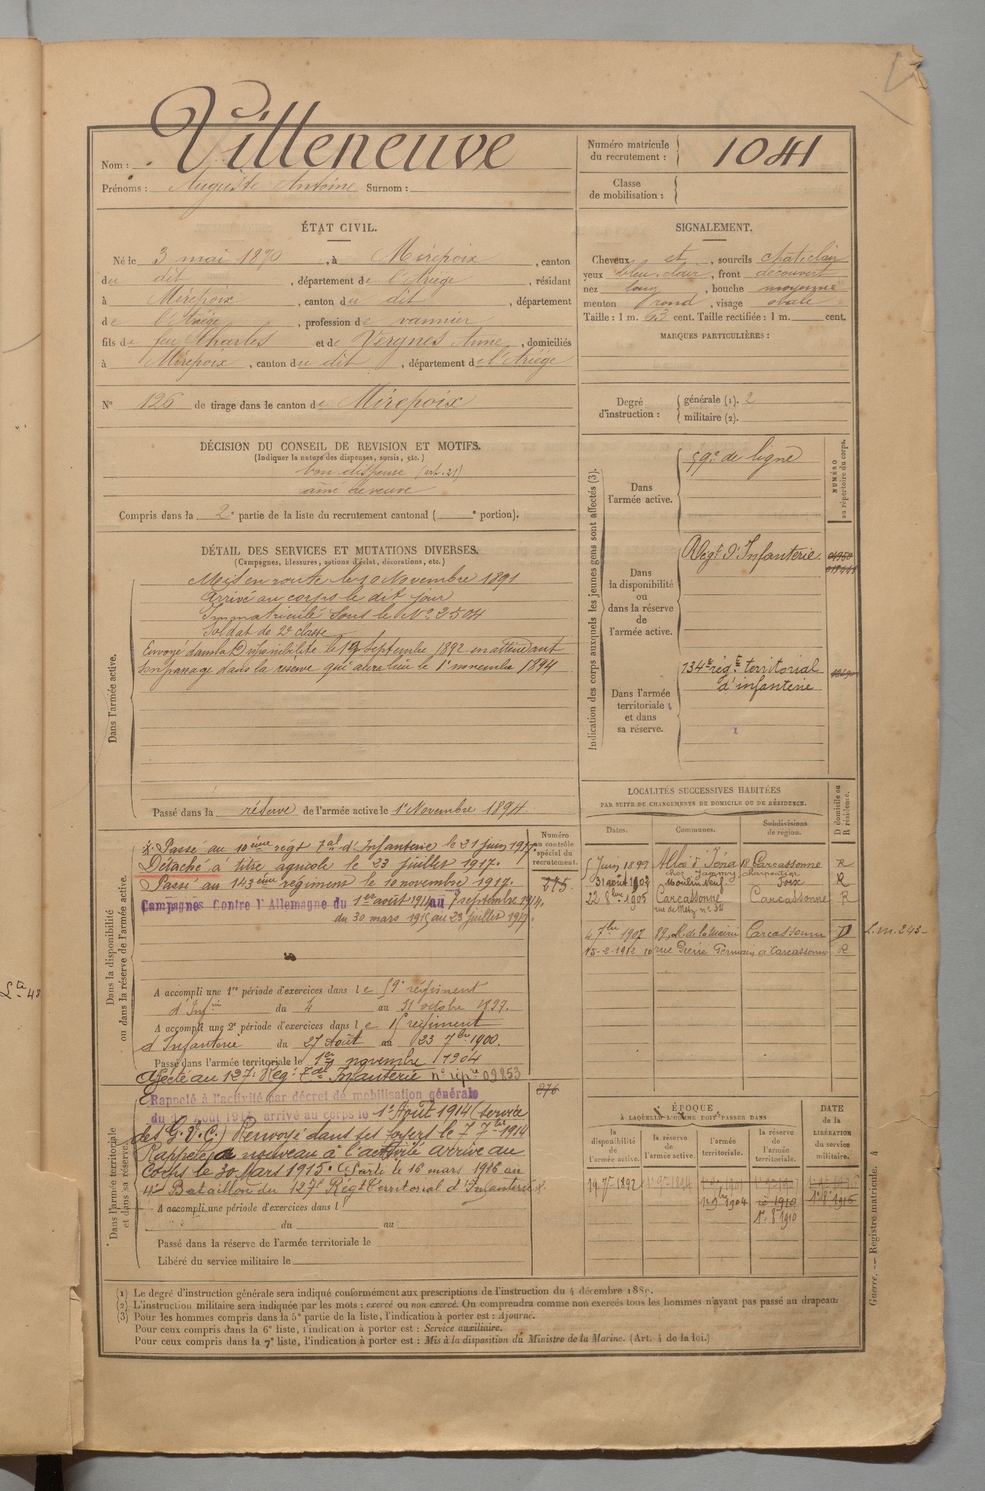 Villeneuve
Nom :
Prénoms : Auguste Antoine Surnom :
Numéro matricule du recrutement : 1041
Classe de mobilisation :
ÉTAT CIVIL.
Né le 3 mai 1870, à Mirepoix, canton
du dit, département de l'Ariège, résidant
à Mirepoix, canton du dit, département
de l'Ariège, profession de vannier
fils de feu Charles et de Vergnes Anne, domiciliés
à Mirepoix, canton du dit, département de l'Ariège
N° 126 de tirage dans le canton de Mirepoix
SIGNALEMENT.
Cheveux et, sourcils chat. clair
yeux bleu clair, front découvert
nez long, bouche moyenne
menton rond, visage ovale
Taille : 1 m. 63 cent. Taille rectifiée : 1 m. cent.
MARQUES PARTICULIÈRES :
Degré d'instruction : générale (1). 2
militaire (2).
DÉCISION DU CONSEIL DE REVISION ET MOTIFS.
(Indiquer la nature des dispenses, sursis, etc.)
bon dispensé (art. 21)
aîné de veuve
Compris dans la 2e partie de la liste du recrutement cantonal ( e portion).
DÉTAIL DES SERVICES ET MUTATIONS DIVERSES.
(Campagnes, blessures, actions d'éclat, décorations, etc.)
Dans l'armée active.
Mis en route le 10 Novembre 1891
Arrivé au corps le dit jour
Immatriculé sous le N° 2504
Soldat de 2e classe
Envoyé dans la Disponibilité le 19 Septembre 1892 en attendant
son passage dans la réserve qui aura lieu le 1er novembre 1894
Passé dans la réserve de l'armée active le 1er Novembre 1894
Indication des corps auxquels les jeunes gens sont affectés (3).
NUMÉRO au répertoire du corps.
Dans l'armée active.
59e de ligne
Dans la disponibilité ou dans la réserve de l'armée active.
Régt d'Infanterie
Dans l'armée territoriale et dans sa réserve.
134e régt territorial
d'infanterie
Dans la disponibilité ou dans la réserve de l'armée active.
Numéro au contrôle spécial du recrutement.
Passé au 10ème régt Tal d'Infanterie le 21 juin 1917.
Détaché à titre agricole le 23 juillet 1917.
Passé au 143ème régiment le 10 novembre 1917.
275
Campagnes Contre l'Allemagne du 1er août 1914 au 7 septembre 1914.
du 30 mars 1915 au 23 juillet 1917.
A accompli une 1re période d'exercices dans le 59e régiment
d'Infie du 4 au 31 octobre 1897.
A accompli une 2e période d'exercices dans le régiment
d'Infanterie du 27 août au 23 7bre 1900.
Passé dans l'armée territoriale le 1er novembre 1904
Affecté au 127e Régt Tal Infanterie n° rép. 09853
Dans l'armée territoriale et dans sa réserve.
276
Rappelé à l'activité par décret de mobilisation générale
du 1er Août 1914, arrivé au corps le 1er Août 1914 (service
des G.V.C.) Renvoyé dans ses foyers le 7 7bre 1914
Rappelé à nouveau à l'activité arrivé au
Corps le 30 Mars 1915. Parti le 16 mars 1916 au
4e Bataillon du 127e Régt Territorial d'Infanterie
A accompli une période d'exercices dans l
du au
Passé dans la réserve de l'armée territoriale le
Libéré du service militaire le
LOCALITÉS SUCCESSIVES HABITÉES
PAR SUITE DE CHANGEMENTS DE DOMICILE OU DE RÉSIDENCE.
D domicile ou R résidence.
Dates. Communes. Subdivisions de région.
Juin 1899 Carcassonne R
31 août 1902 Moulin Neuf Foix R
22 8bre 1905 Carcassonne Carcassonne R
rue de Metz n° 34
4 7bre 1907 Carcassonne D
15-2-1912 rue Pierre Germain Carcassonne R
L.m. 243
ÉPOQUE
À LAQUELLE L'HOMME DOIT PASSER DANS
la disponibilité de l'armée active.
la réserve de l'armée active.
l'armée territoriale.
la réserve de l'armée territoriale.
DATE de la LIBÉRATION du service militaire.
19 7bre 1892
1er 9bre 1894
1er 9bre 1904
1er 8bre 1910
1er 8bre 1916
Guerre. — Registre matricule. 4
(1) Le degré d'instruction générale sera indiqué conformément aux prescriptions de l'instruction du 4 décembre 1889.
(2) L'instruction militaire sera indiquée par les mots : exercé ou non exercé. On comprendra comme non exercés tous les hommes n'ayant pas passé au drapeau.
(3) Pour les hommes compris dans la 5e partie de la liste, l'indication à porter est : Ajourné.
Pour ceux compris dans la 6e liste, l'indication à porter est : Service auxiliaire.
Pour ceux compris dans la 7e liste, l'indication à porter est : Mis à la disposition du Ministre de la Marine. (Art. 4 de la loi.)